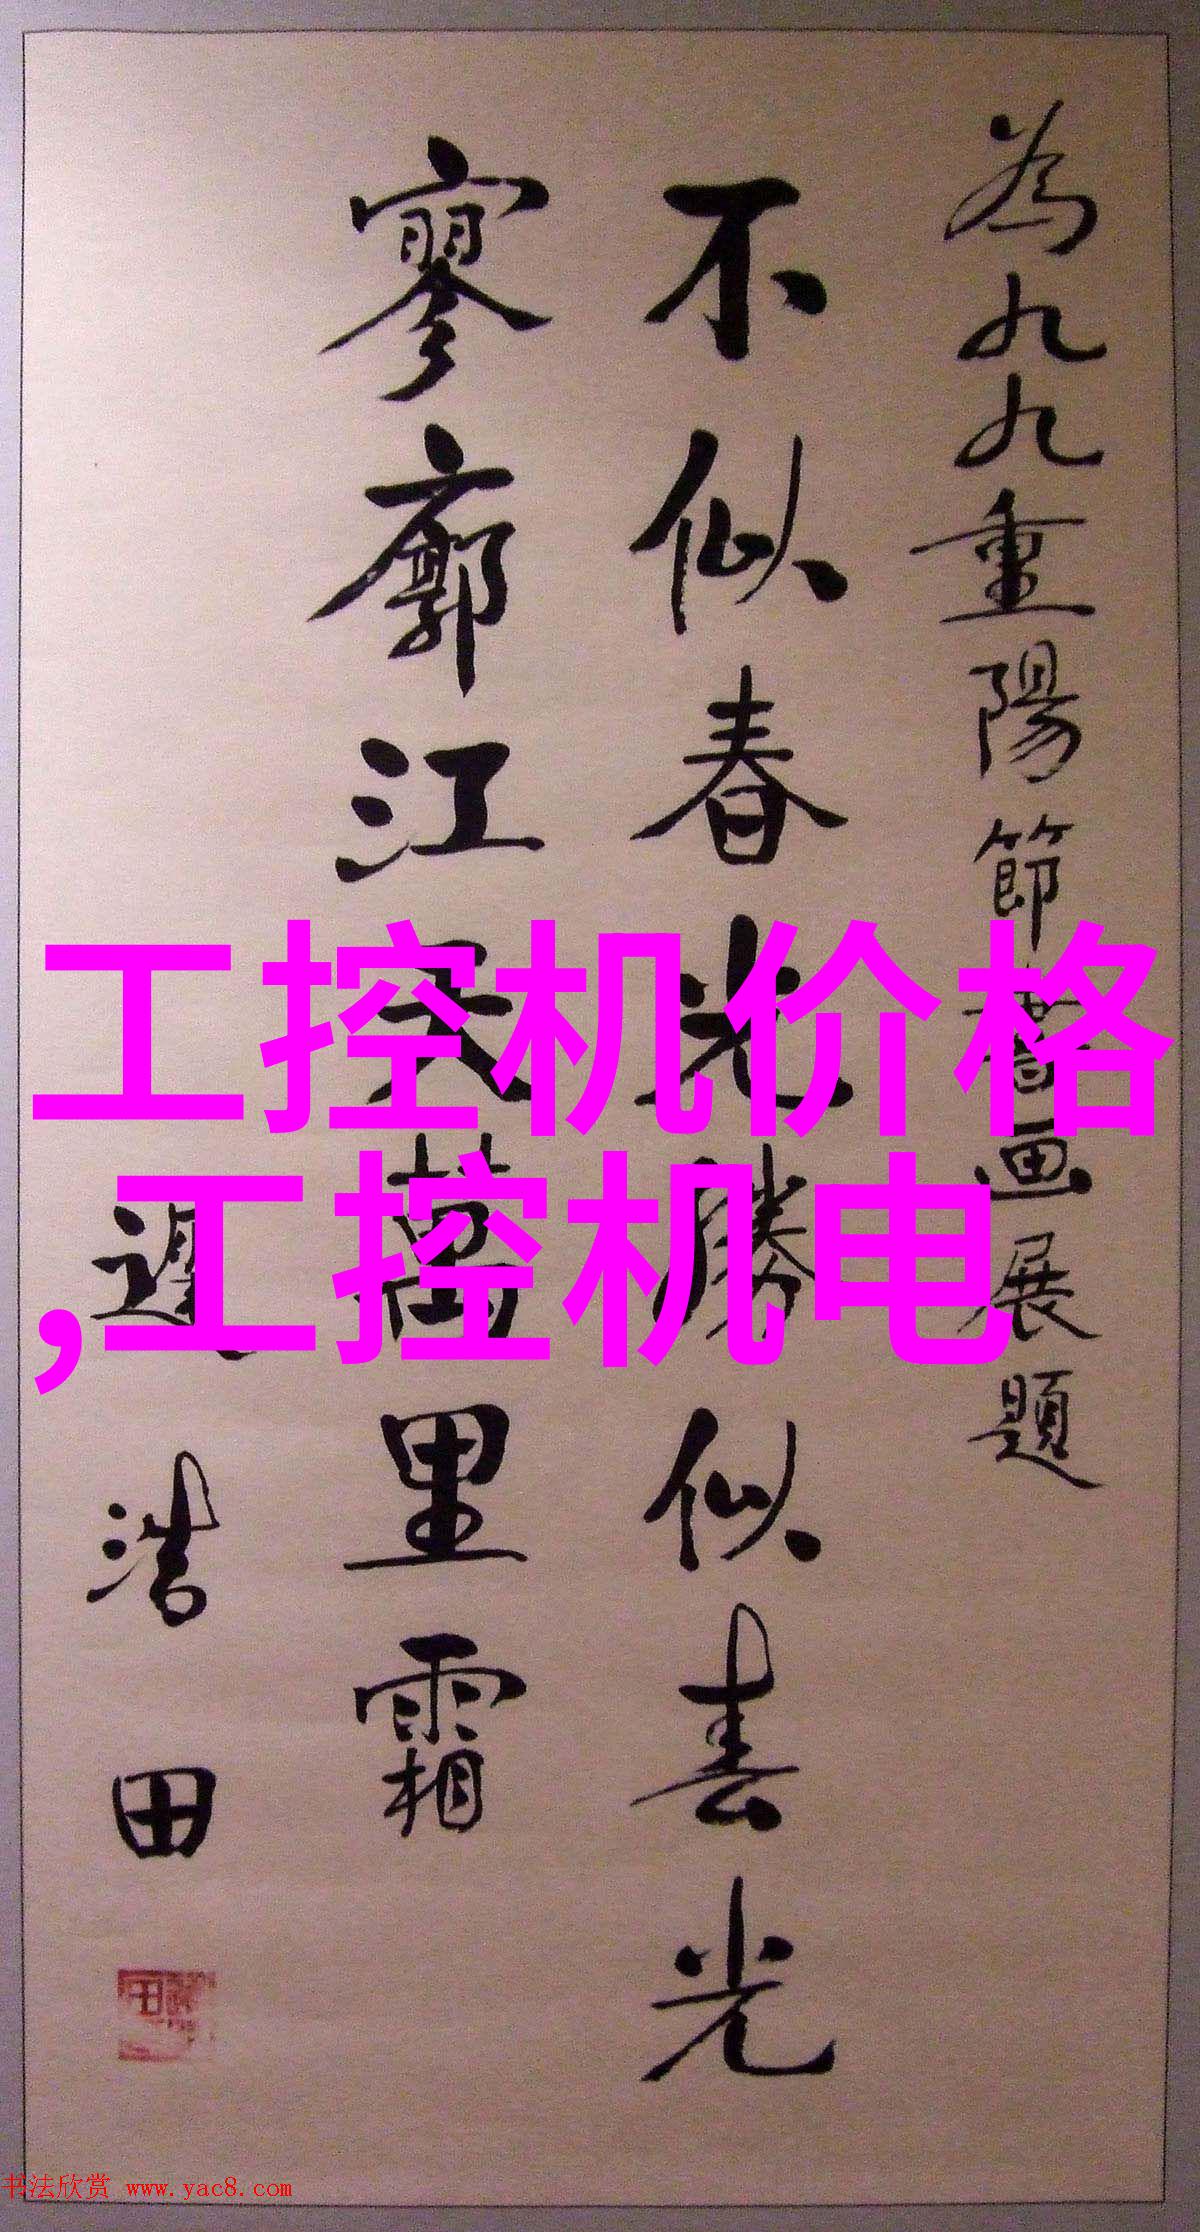 為九九重陽節書画展題
不似春光勝似春光
寥廓江天萬里霜
遲浩田
工控机价格
,工控机电
书法欣赏 www.yac8.com